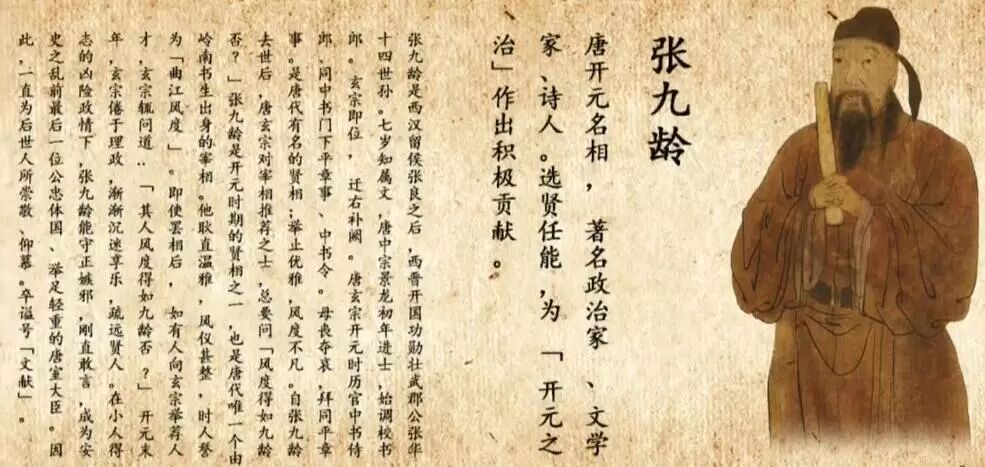 张九龄
唐开元名相，著名政治家、文学
家、诗人。选贤任能,为「开元之
治」作出积极贡献。
张九龄是西汉留侯张良之后,西晋开国功勋壮武郡公张华
十四世孙。七岁知属文,唐中宗景龙初年进士,始调校书
郎。玄宗即位,迁右补阙。唐玄宗开元时历官中书侍
郎、同中书门下平章事、中书令。母丧夺哀,拜同平章
事。是唐代有名的贤相;举止优雅,风度不凡。自张九龄
去世后,唐玄宗对宰相推荐之士,总要问「风度得如九龄
否?」张九龄是开元时期的贤相之一,也是唐代唯一个由
岭南书生出身的宰相。他耿直温雅,风仪甚整,时人誉
为「曲江风度」。即使罢相后,如有人向玄宗举荐人
才,玄宗辄问道:「其人风度得如九龄否?」开元末
年,玄宗倦于理政,渐渐沉迷享乐,疏远贤人。在小人得
志的凶险政情下,张九龄能守正嫉邪,刚直敢言,成为安
史之乱前最后一位公忠体国、举足轻重的唐室大臣。因
此,一直为后世人所崇敬、仰慕。卒谥号「文献」。